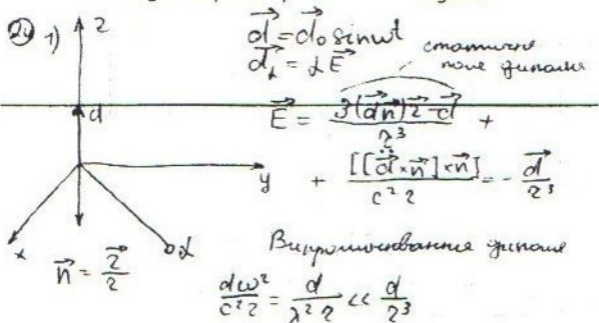 24 1)
z
d
y
x
α
\vec{n} = \frac{\vec{r}}{r}
\vec{d} = \vec{d}_0 sin ωt
\vec{d}_α = α\vec{E}
статичне
поле диполя
\vec{E} = \frac{3(\vec{d}\vec{n})\vec{r} - \vec{d}}{r^3} +
+ \frac{[[\ddot{\vec{d}} × \vec{n}] × \vec{n}]}{c^2 r} = - \frac{\vec{d}}{r^3}
Випромінювання диполя
\frac{dω^2}{c^2 r} = \frac{d}{λ^2 r} << \frac{d}{r^3}